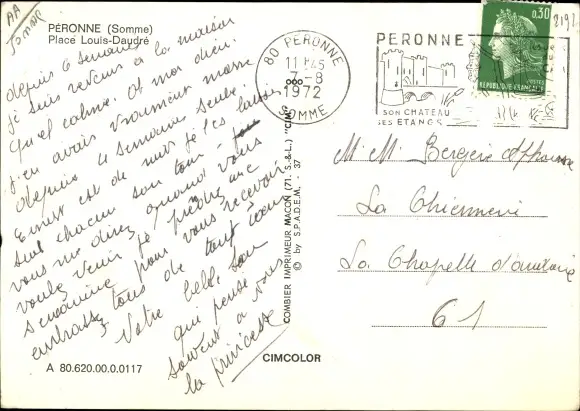 AA
PÉRONNE (Somme)
Place Louis-Daudré
depuis 6 semaines
je suis revenu à la maison
quel calme. Ot moi dieu.
j'en avais vraiment marre
depuis 4 semaine seule.
Ernest est de nuit je les laisse
seul chacun son tour
vous me direz quand vous
voulez venir te prendre une
semaine pour vous recevoir
embrasse tous de tout coeur
Votre belle soeur
qui pense
souvent a vous
la princesse
A 80.620.00.0.0117
CIMCOLOR
COMBIER IMPRIMEUR MACON (71. S.-&-L.) "CIM"
© by S.P.A.D.E.M. - 37
80 PERONNE
11 H45
7-8
1972
SOMME
PERONNE
SON CHATEAU
SES ETANGS
0,30
POSTES
REPUBLIQUE FRANÇAISE
M. M. Bergeris Alphonse
La
La Chapelle
61